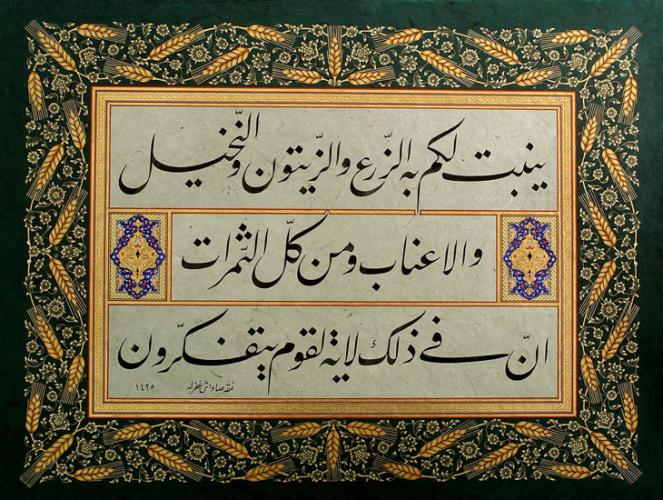 ينبت لكم به الزّرع والزّيتون والنّخيل
والاعناب ومن كلّ الثّمرات
انّ في ذلك لاية لقوم يتفكّرون
نمقه صاواش غفر له ١٤٢٥